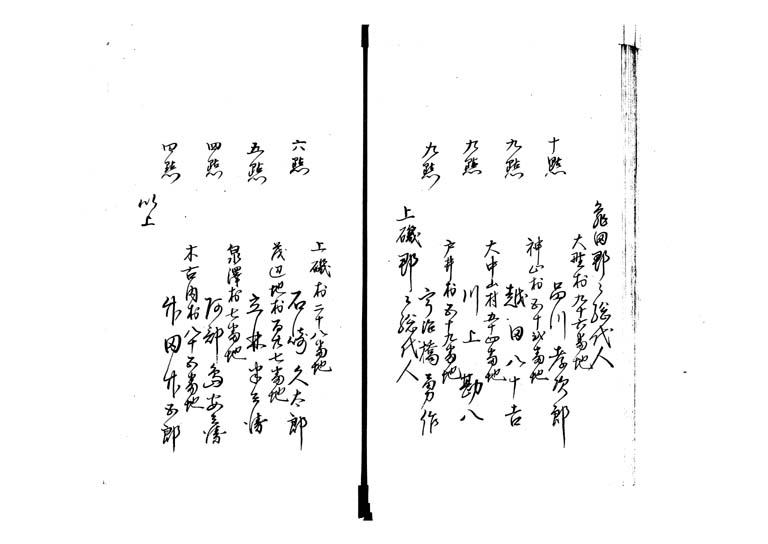 亀田郡々総代人
大野村九十六番地
十點 品川孝次郎
神山村五十弐番地
九點 越田八十吉
大中山村五十四番地
九點 川上勘八
戸井村五十九番地
九點 宇治橋勇作
上磯郡々総代人
上磯村二十八番地
六點 石崎久太郎
茂辺地村百七番地
五點 立林半兵衛
泉澤村七番地
四點 阿部鳥安兵衛
木古内村八十五番地
四點 竹田竹五郎
以上